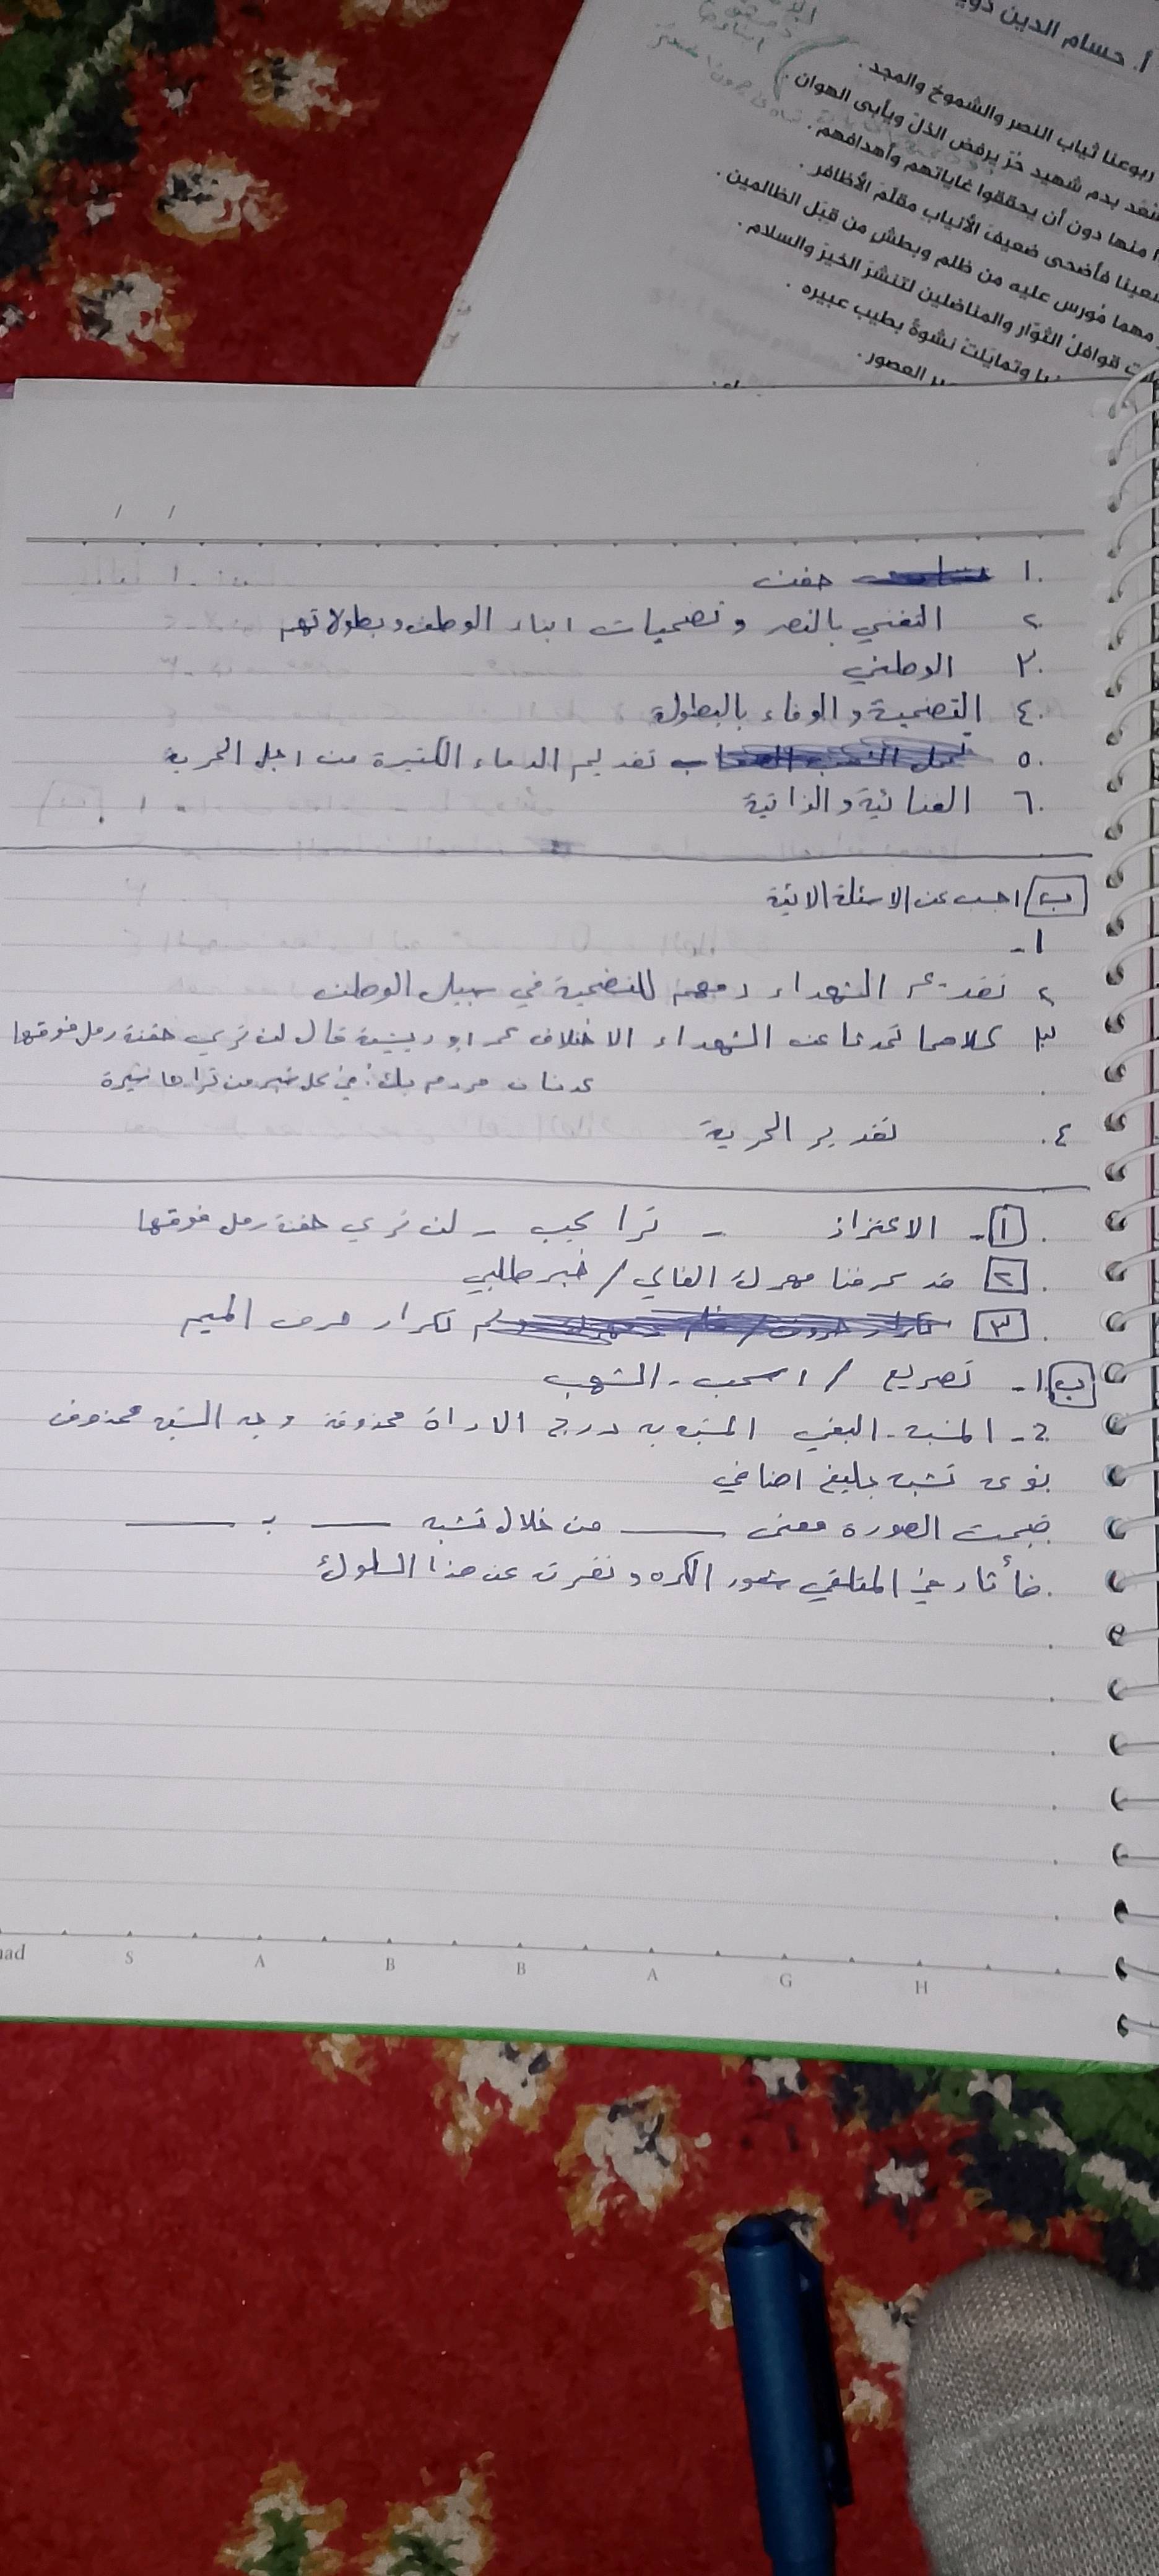 أ. حسام الدين
ربوعنا ثياب النصر والشموخ والمجد .
بدم شهيد حُرّ يرفض الذلّ ويأبى الهوان .
منها دون أن يحققوا غاياتهم وأهدافهم .
فأضحى ضعيف الأنياب مقلّم الأظافر .
مهما مُورس عليه من ظلم وبطش من قِبل الظالمين .
قوافل الثوّار والمناضلين لتنشرَ الخيرَ والسلام .
وتمايلتْ نشوةً بطيب عبيره .
العصور .
١. جفت
٢ التغني بالنصر وتضحيات ابناء الوطن وبطولاتهم
٣. الوطني
٤. التضحية والوفاء بالبطولة
٥. تقديم الدماء الكثيرة من اجل الحرية
٦. الغنائية والذاتية
ب اجب عن الاسئلة الاتية
١-
٢ تقديم الشهداء دمهم للتضحية في سبيل الوطن
٣ كلاهما تحدثا عن الشهداء الاختلاف عمر ابو ريشة قال لن تري حفنة رمل فوقها
عدنان مردم بك: في كل شبر من ترابها
٤. تقدير الحرية
أ- الاعتزاز - ترا كيب - لن تري حفنة رمل فوقها
٢ قد عرفنا مهرك الغالي / خبر طلبي
٣ تكرار حرف الميم
ب ١- تصريع / اسحب - الشهب
2- المشبه - البغي المشبه به درج الاداة محذوفة وجه الشبه محذوف
نوع تشبه بليغ اضافي
قبحت الصورة معنى ـــــ من خلال تشبه ـــــ بـ ـــــ
فأثار في المتلقي شعور الكره ونفرت عن هذا السلوك
S A B B A G H